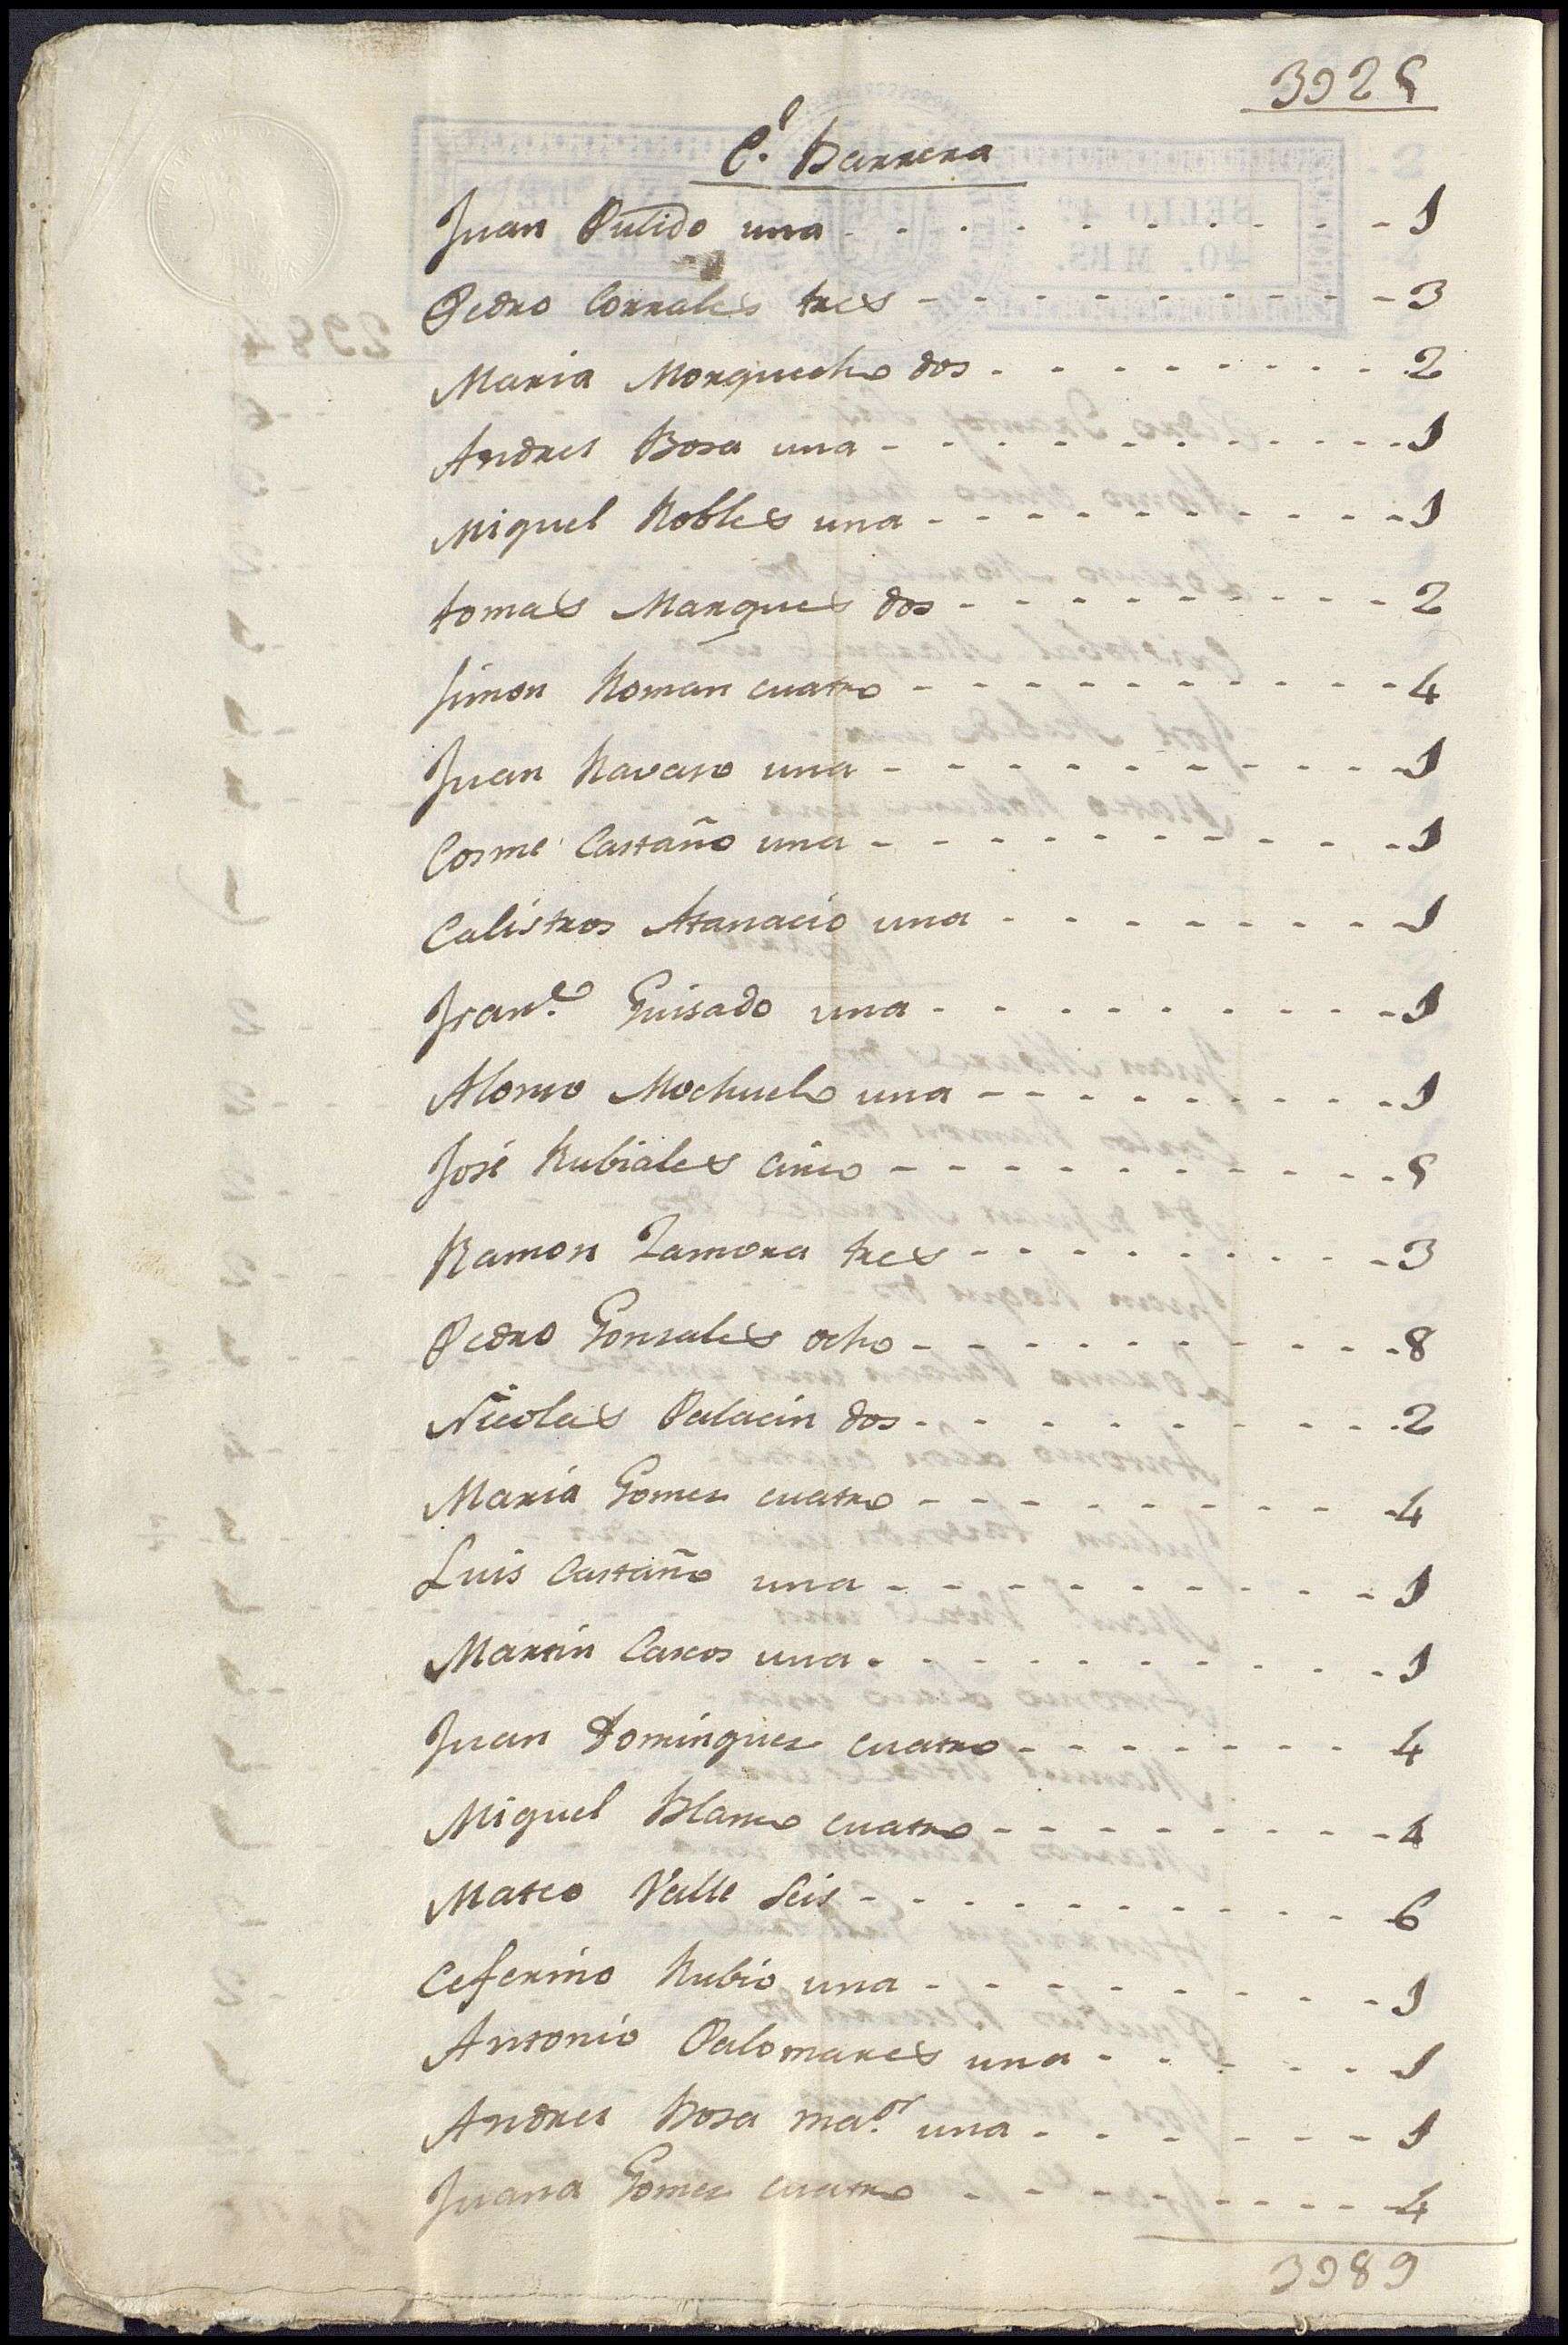 3925
C.l Barrera
Juan Pulido una - - - - - - - - - - 1
Pedro Corrales tres - - - - - - - - - 3
Maria Morquecho dos - - - - - - - - 2
Andres Bosa una - - - - - - - - - - 1
Miguel Robles una - - - - - - - - - 1
tomas Marques dos - - - - - - - - 2
Simon Roman cuatro - - - - - - - - - 4
Juan Navaro una - - - - - - - - - - 1
Cosme Castaño una - - - - - - - - - 1
Calistros Atanacio una - - - - - - - 1
Fran.co Guisado una - - - - - - - - 1
Alonso Mochuelo una - - - - - - - - 1
José Rubiales cinco - - - - - - - - - 5
Ramon Zamora tres - - - - - - - - 3
Pedro Gonsales ocho - - - - - - - - - 8
Nicolas Palacin dos - - - - - - - - - 2
Maria Gomez cuatro - - - - - - - - - 4
Luis Castaño una - - - - - - - - - 1
Martin Cascos una - - - - - - - - - 1
Juan Dominguez cuatro - - - - - - - 4
Miguel Blanco cuatro - - - - - - - - 4
Mateo Valle Seis - - - - - - - - - 6
Ceferino Rubio una - - - - - - - - 1
Antonio Palomares una - - - - - - 1
Andres Bosa ma.or una - - - - - - 1
Juana Gomez cuatro - - - - - - - - 4
3989